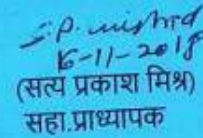 S.P. mishra
16-11-2018
(सत्य प्रकाश मिश्र)
सहा.प्राध्यापक